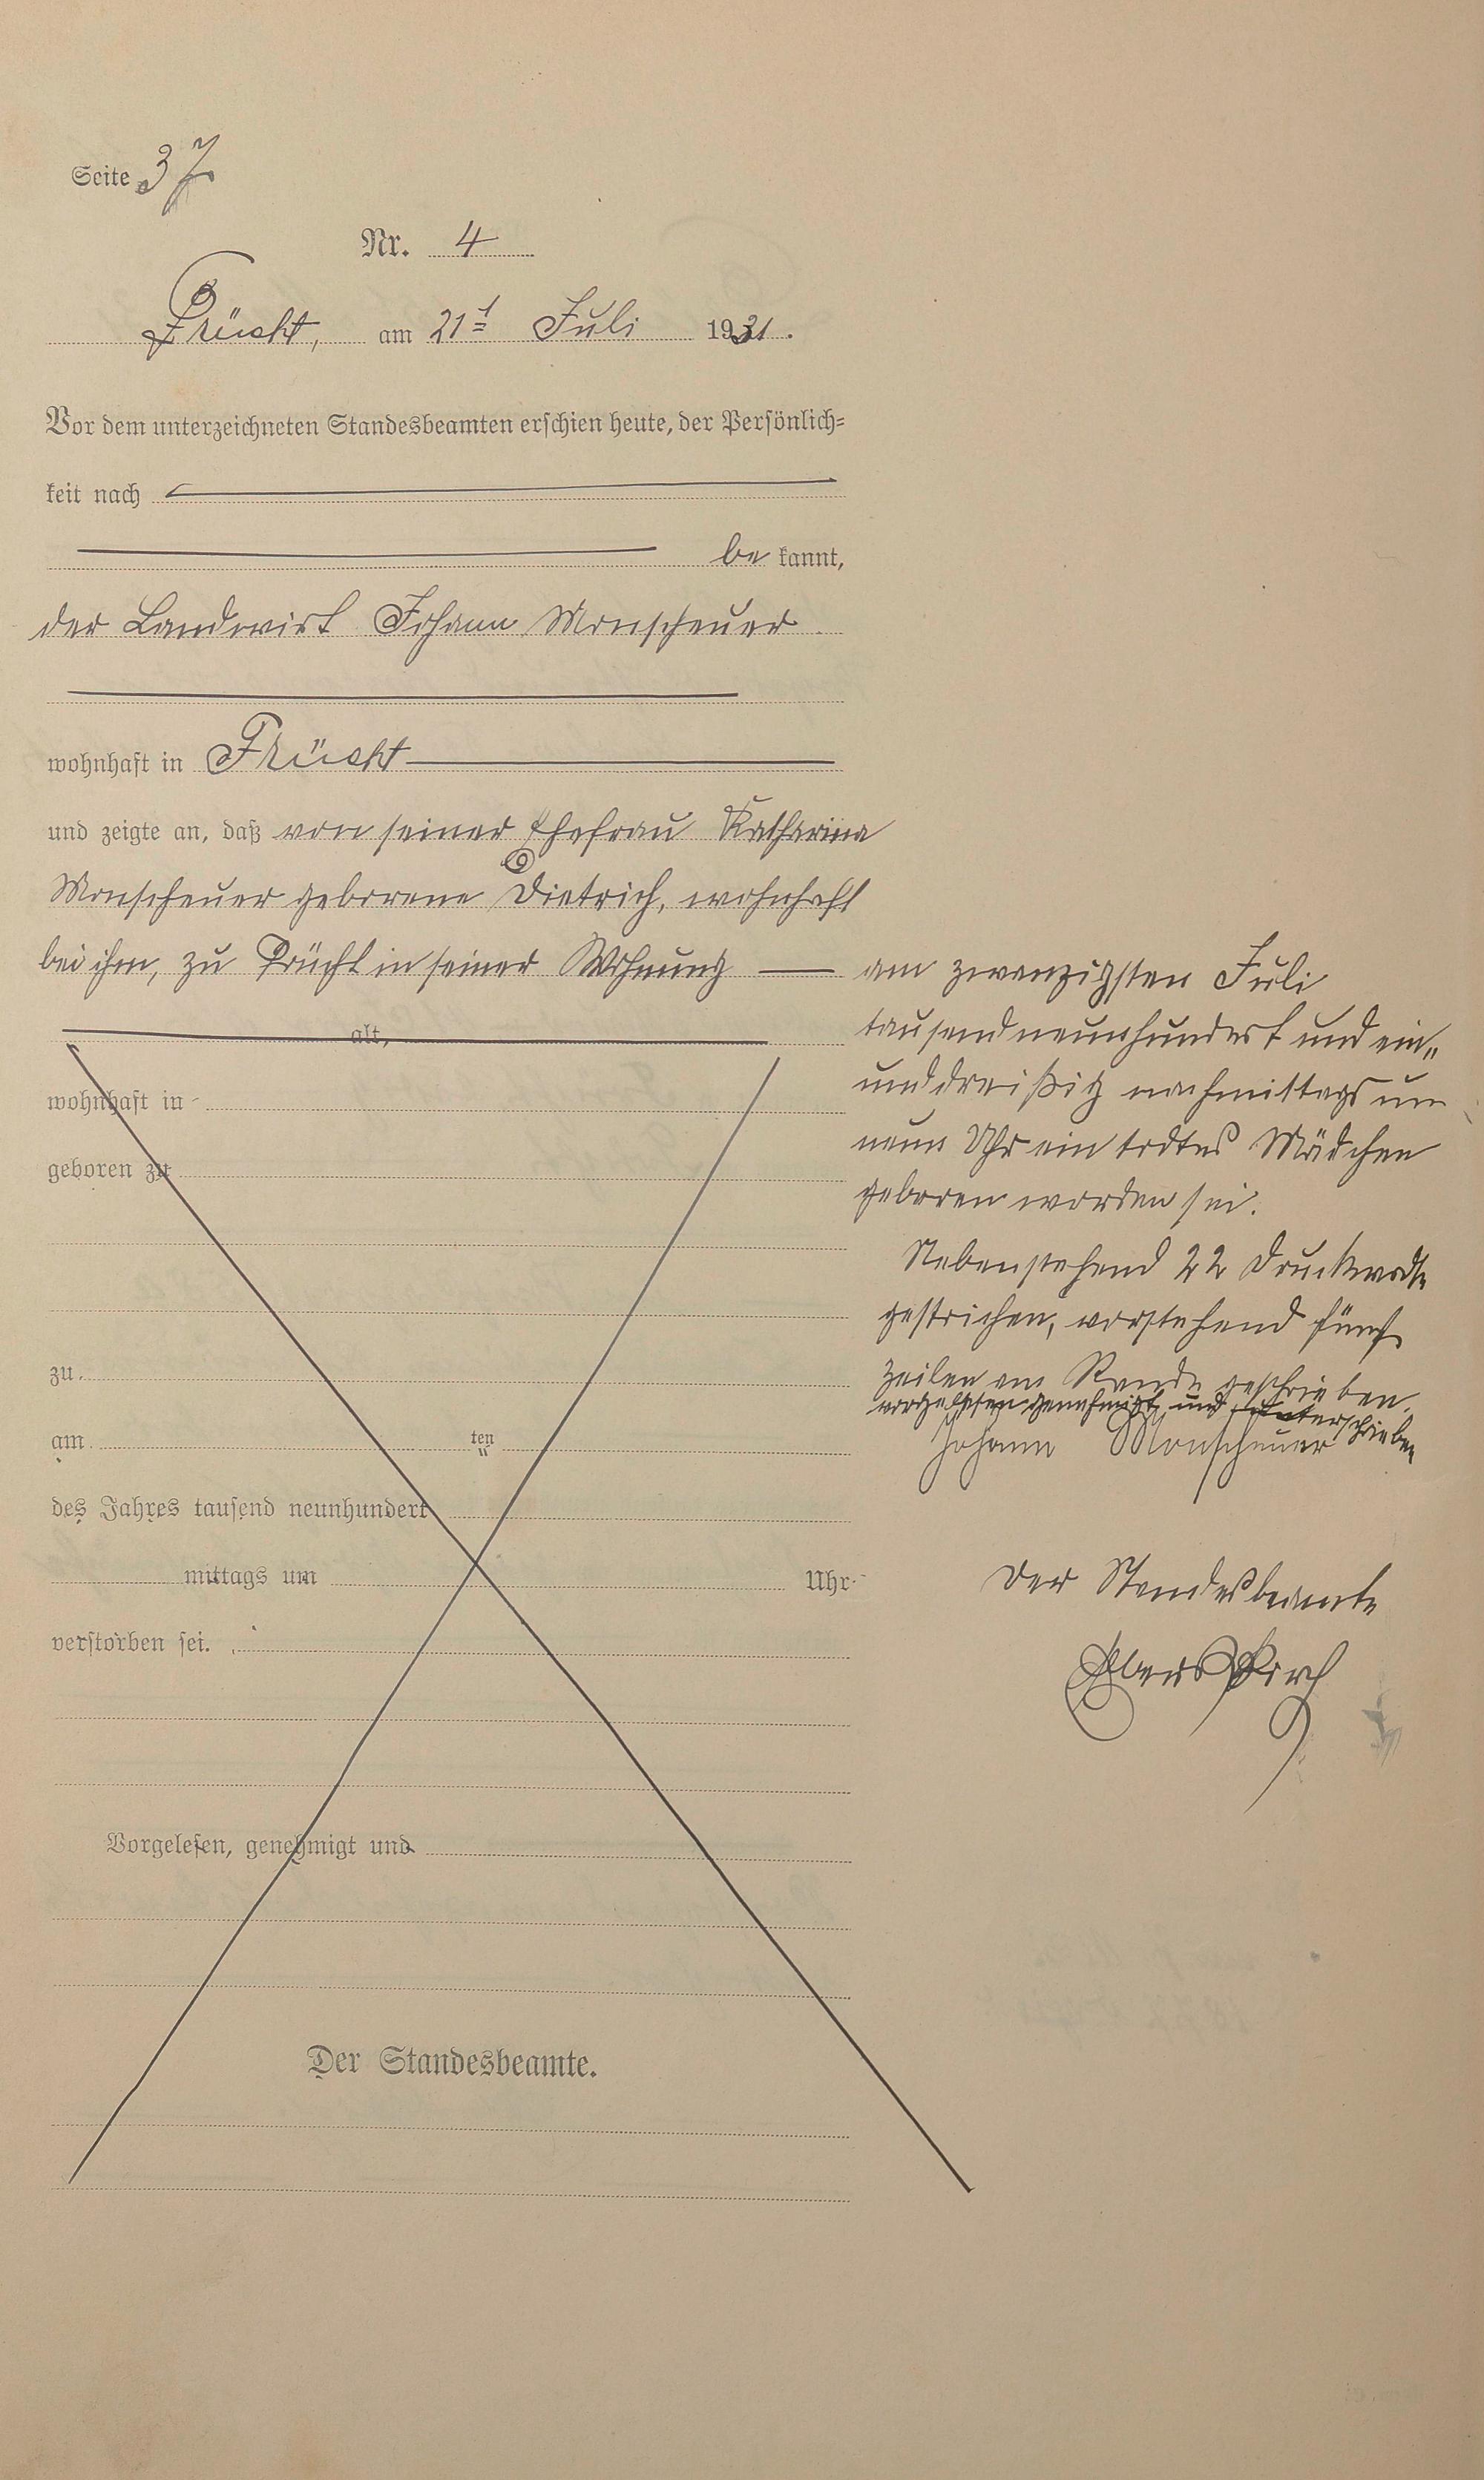 Seite 37
Nr. 4
Frücht, am 21t Juli 1931.
Vor dem unterzeichneten Standesbeamten erschien heute, der Persönlich-
keit nach
be kannt,
der Landwirt Johann Monscheuer
wohnhaft in Frücht
und zeigte an, daß von seiner Ehefrau Katharina
Monscheuer geborene Dietrich, wohnhaft
bei ihm, zu Frücht in seiner Wohnung
alt,
wohnhaft in
geboren zu
zu
am ten
des Jahres tausend neunhundert
mittags um Uhr
verstorben sei.
Vorgelesen, genehmigt und
Der Standesbeamte.
am zwanzigsten Juli
tausendneunhundert und ein„
unddreißig nachmittags um
neun Uhr ein todtes Mädchen
geboren worden sei.
Nebenstehend 22 Druckworte
gestrichen, vorstehend fünf
Zeilen am Rande geschrieben.
vorgelesen genehmigt und unterschrieben
Johann Monscheuer
Der Standesbeamte